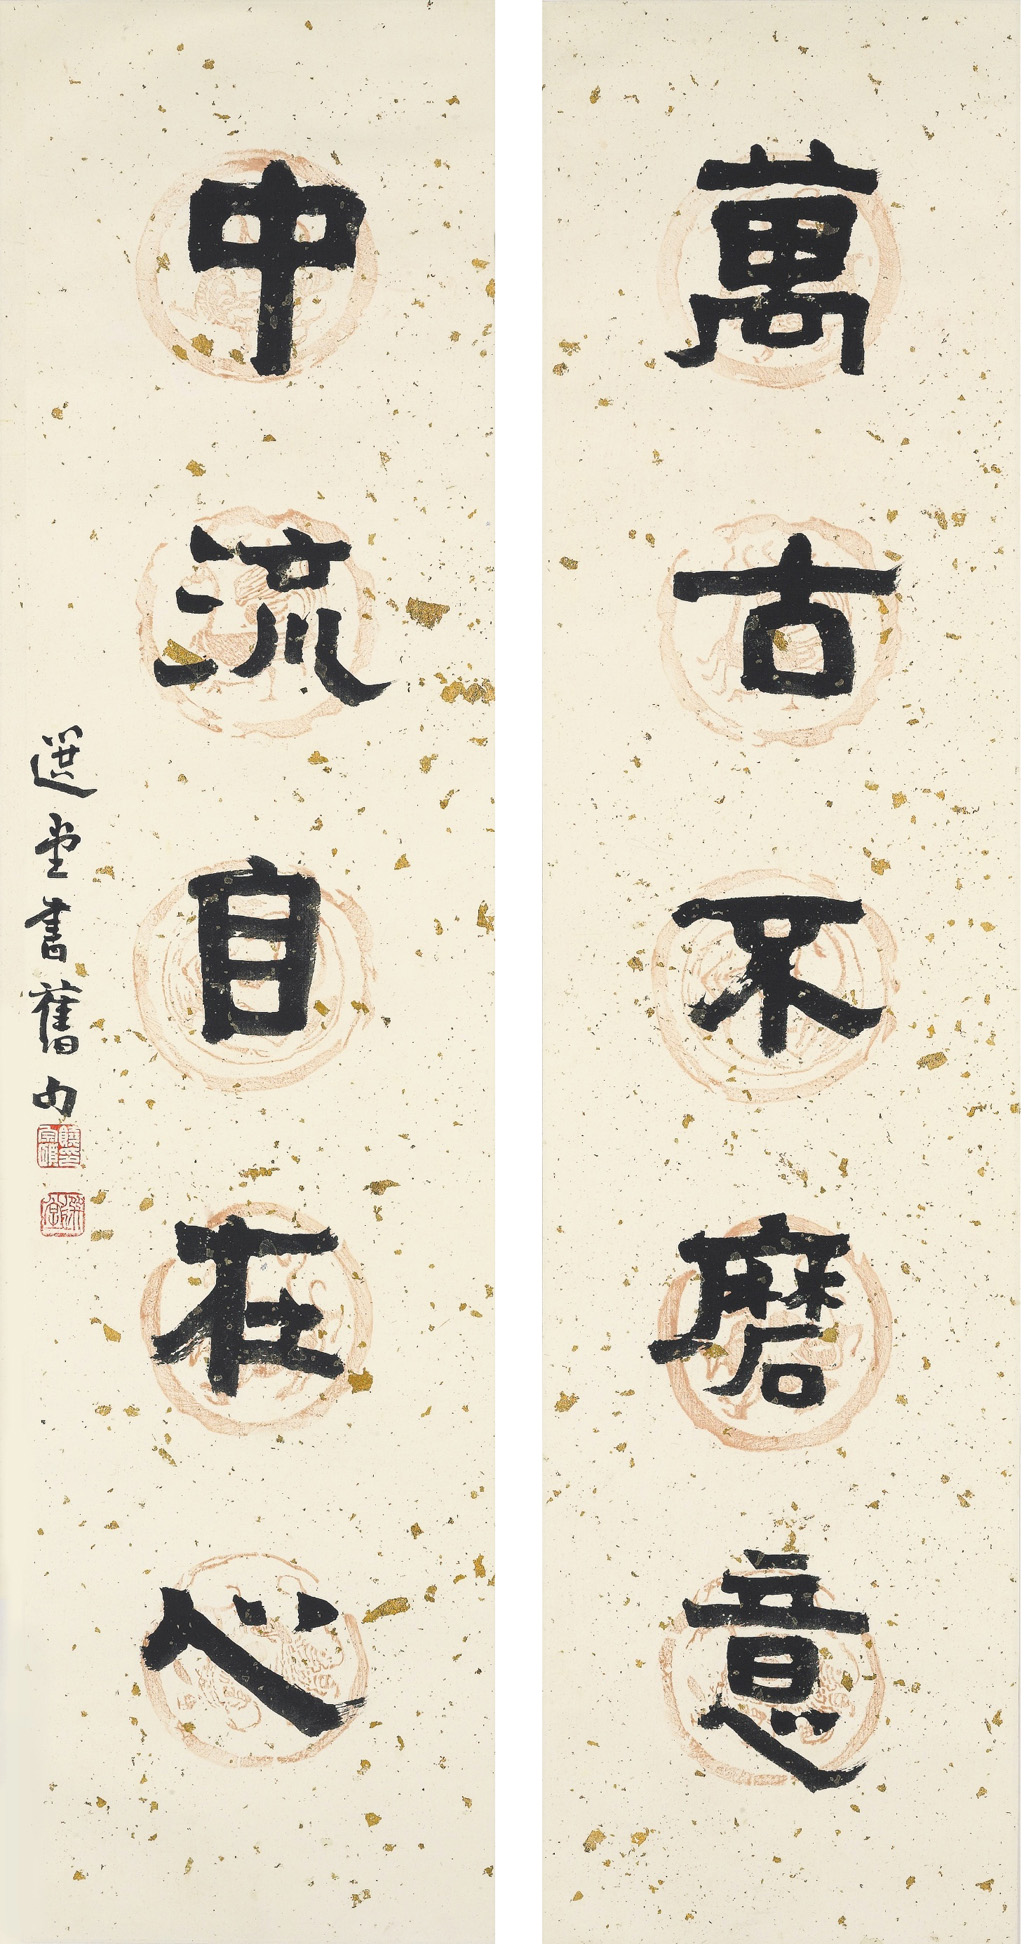 萬古不磨意
中流自在心
選堂書舊句